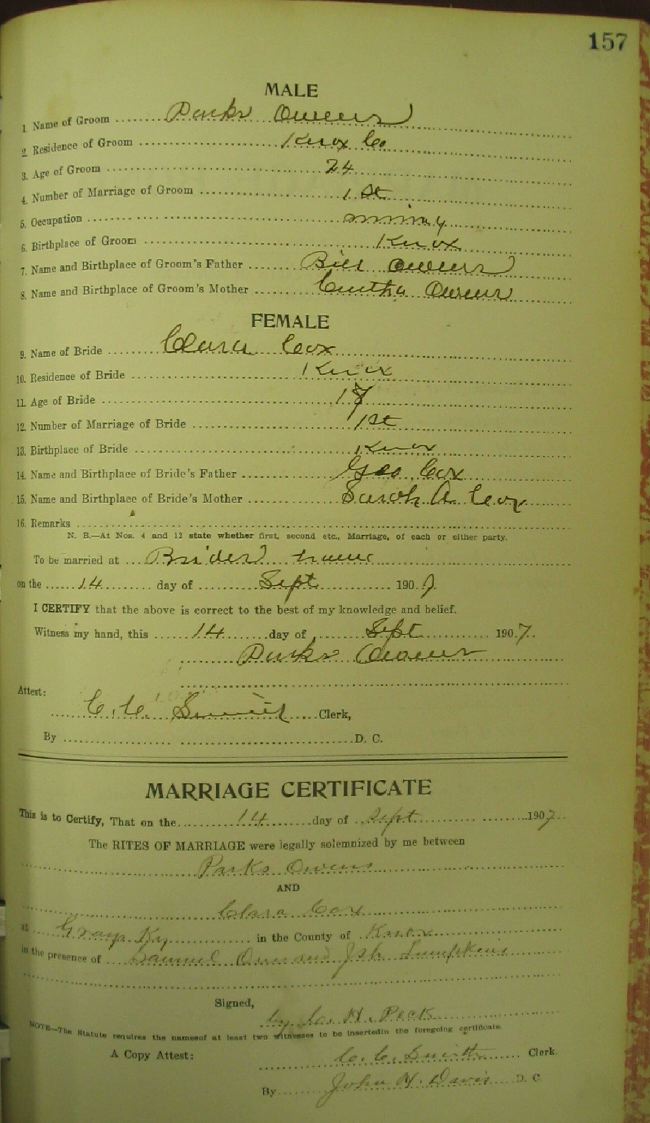 157
MALE
1. Name of Groom Parks Owens
2. Residence of Groom Knox Co
3. Age of Groom 24
4. Number of Marriage of Groom 1st
5. Occupation mining
6. Birthplace of Groom Knox
7. Name and Birthplace of Groom's Father Bill Owens
8. Name and Birthplace of Groom's Mother Owens
FEMALE
9. Name of Bride Clara Cox
10. Residence of Bride Knox
11. Age of Bride 17
12. Number of Marriage of Bride 1st
13. Birthplace of Bride Knox
14. Name and Birthplace of Bride's Father Geo Cox
15. Name and Birthplace of Bride's Mother Sarah A. Cox
16. Remarks
N. B.—At Nos. 4 and 12 state whether first, second etc., Marriage, of each or either party.
To be married at Brides home
on the 14 day of Sept 1907
I CERTIFY that the above is correct to the best of my knowledge and belief.
Witness my hand, this 14 day of Sept 1907.
Parks Owens
Attest:
C. C. Smith Clerk,
By D. C.
MARRIAGE CERTIFICATE
This is to Certify, That on the 14 day of Sept 1907
The RITES OF MARRIAGE were legally solemnized by me between
Parks Owens
AND
Clara Cox
at Grays Ky in the County of Knox
in the presence of and Lumpkins
Signed,
by H. Peck
NOTE—The Statute requires the names of at least two witnesses to be inserted in the foregoing certificate
A Copy Attest: C. C. Smith Clerk
By John H. Davis D. C.